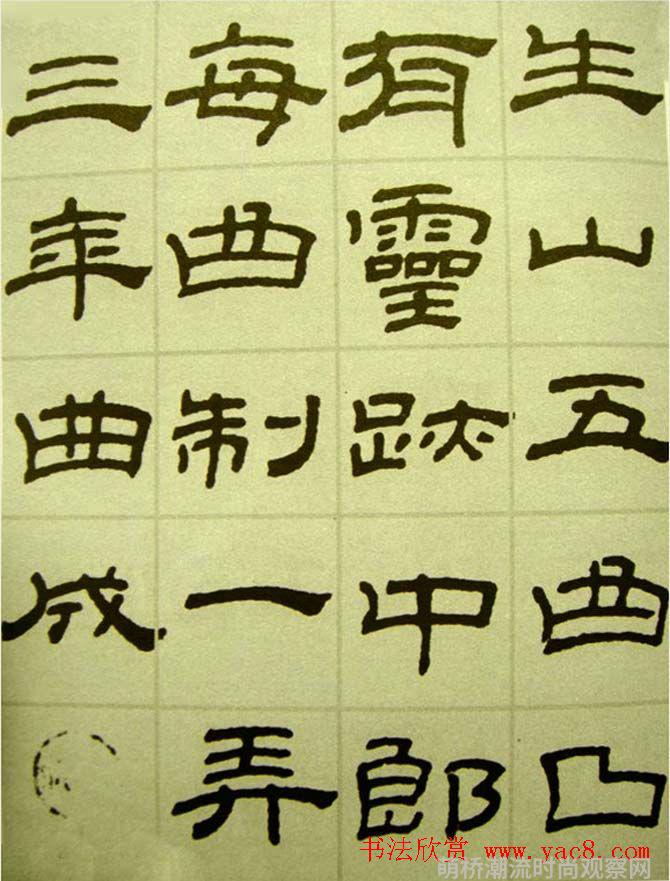 生山五曲曲
有靈跡中郎
每曲制一弄
三年曲成
书法欣赏 www.yac8.com
萌桥潮流时尚观察网